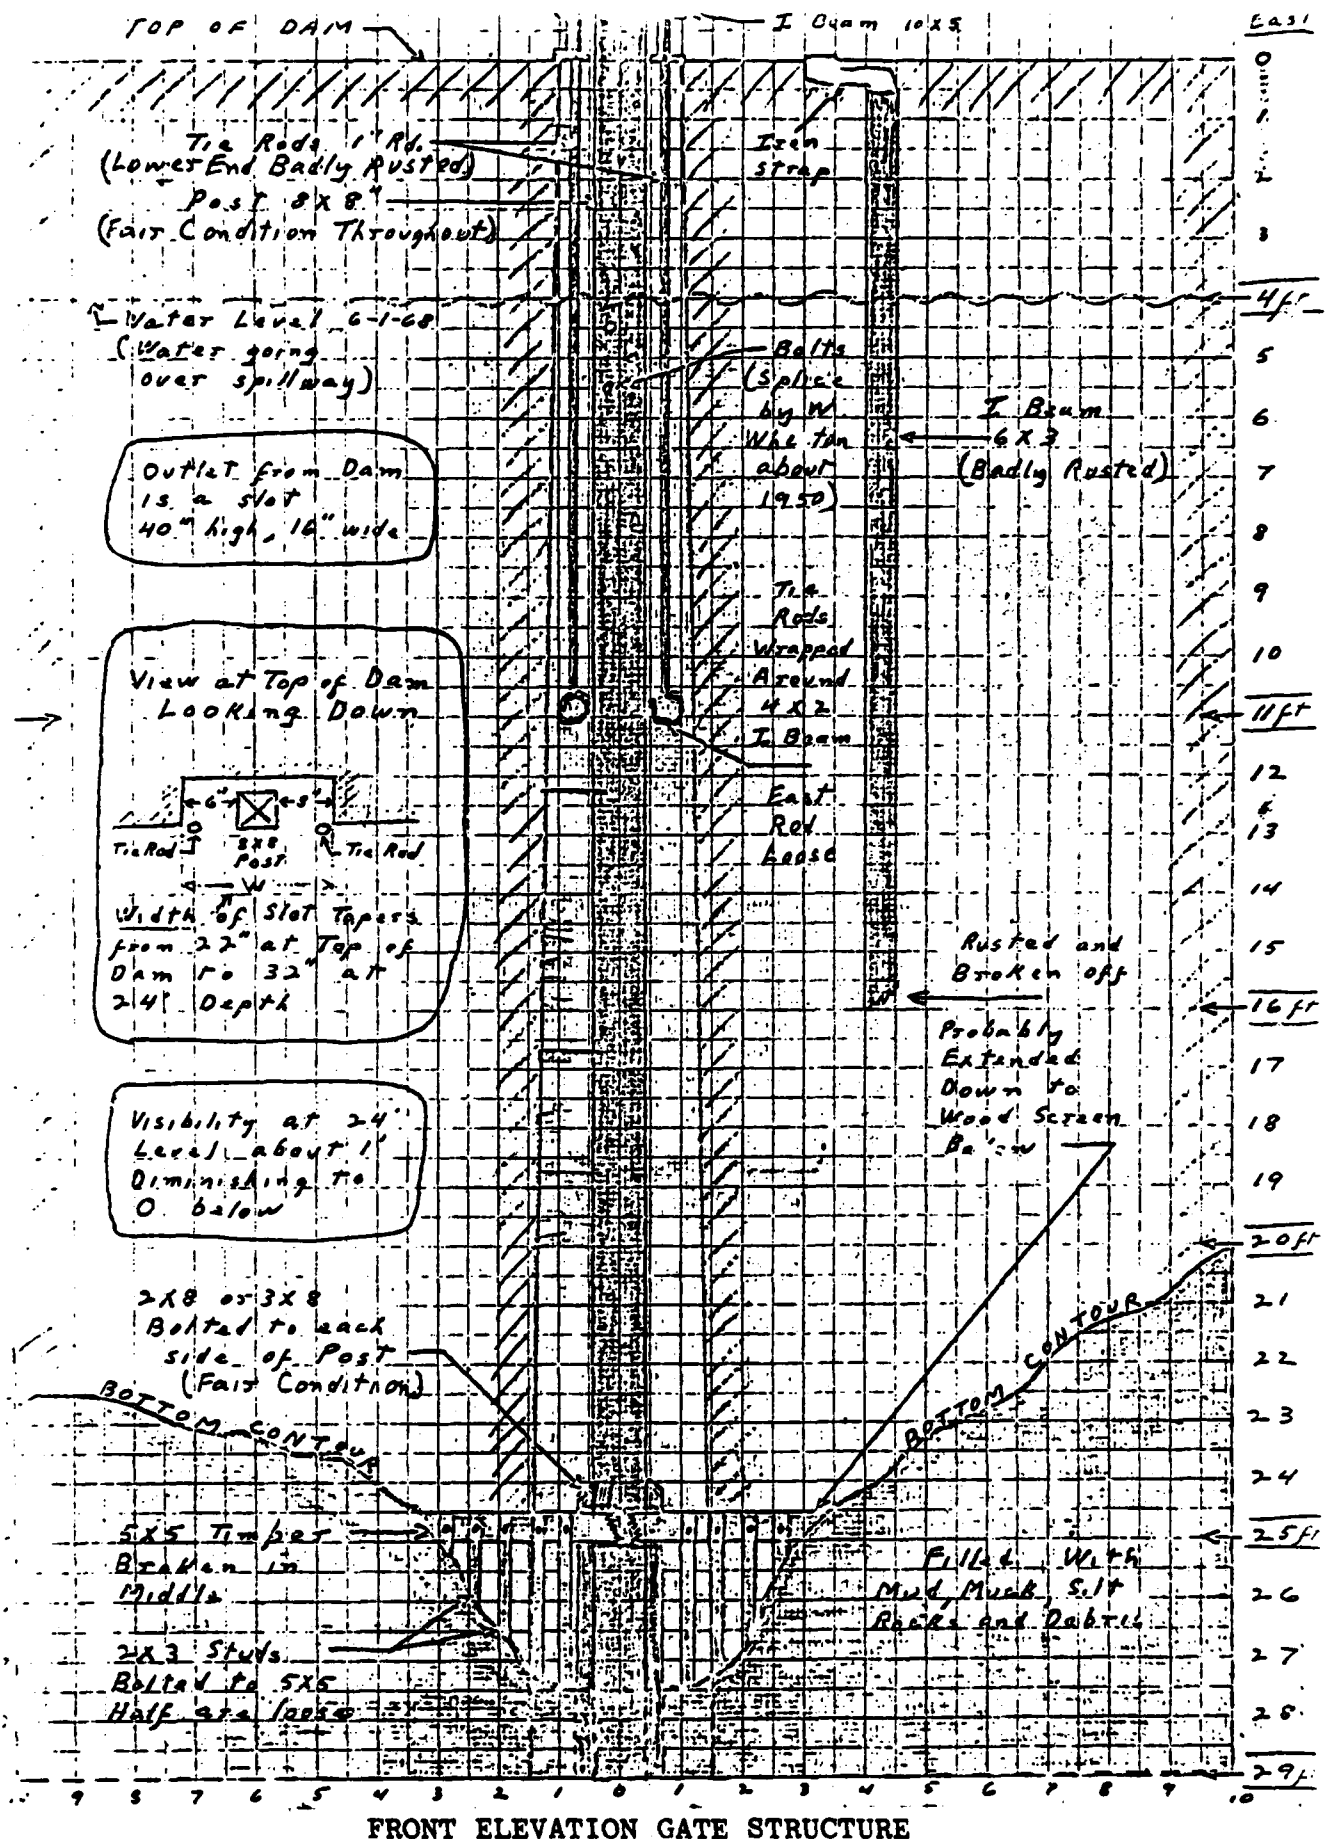 TOP OF DAM
I Beam 10x5
East
Tie Rods 1" Rd.
(Lower End Badly Rusted)
Post 8 X 8"
(Fair Condition Throughout)
Iron
strap
Water Level 6-1-68
(Water going
over spillway)
Bolts
(Splice
by W
about
1950)
I Beam
6 X 3
(Badly Rusted)
Outlet from Dam
is a slot
40" high, 16" wide
Tie
Rods
Wrapped
Around
4 X 2
I Beam
East
Rod
Loose
View at Top of Dam
Looking Down
6" 8"
Tie Rod
8X8
Post
Tie Rod
W
Width of Slot Tapers
from 22" at Top of
Dam to 32" at
24' Depth
Rusted and
Broken off
Probably
Extended
Down to
Wood Screen
Below
Visibility at 24'
Level about 1'
Diminishing to
0 below
2X8 or 3X8
Bolted to each
side of Post
(Fair Condition)
BOTTOM CONTOUR
BOTTOM CONTOUR
5X5 Timber
Broken in
Middle
2X3 Studs
Bolted to 5X5
Half are loose
Filled With
Mud, Muck, Silt
Rocks and Debris
0
1
2
3
4 ft
5
6
7
8
9
10
11 ft
12
13
14
15
16 ft
17
18
19
20 ft
21
22
23
24
25 ft
26
27
28
29 ft
9 8 7 6 5 4 3 2 1 0 1 2 3 4 5 6 7 8 9 10
FRONT ELEVATION GATE STRUCTURE